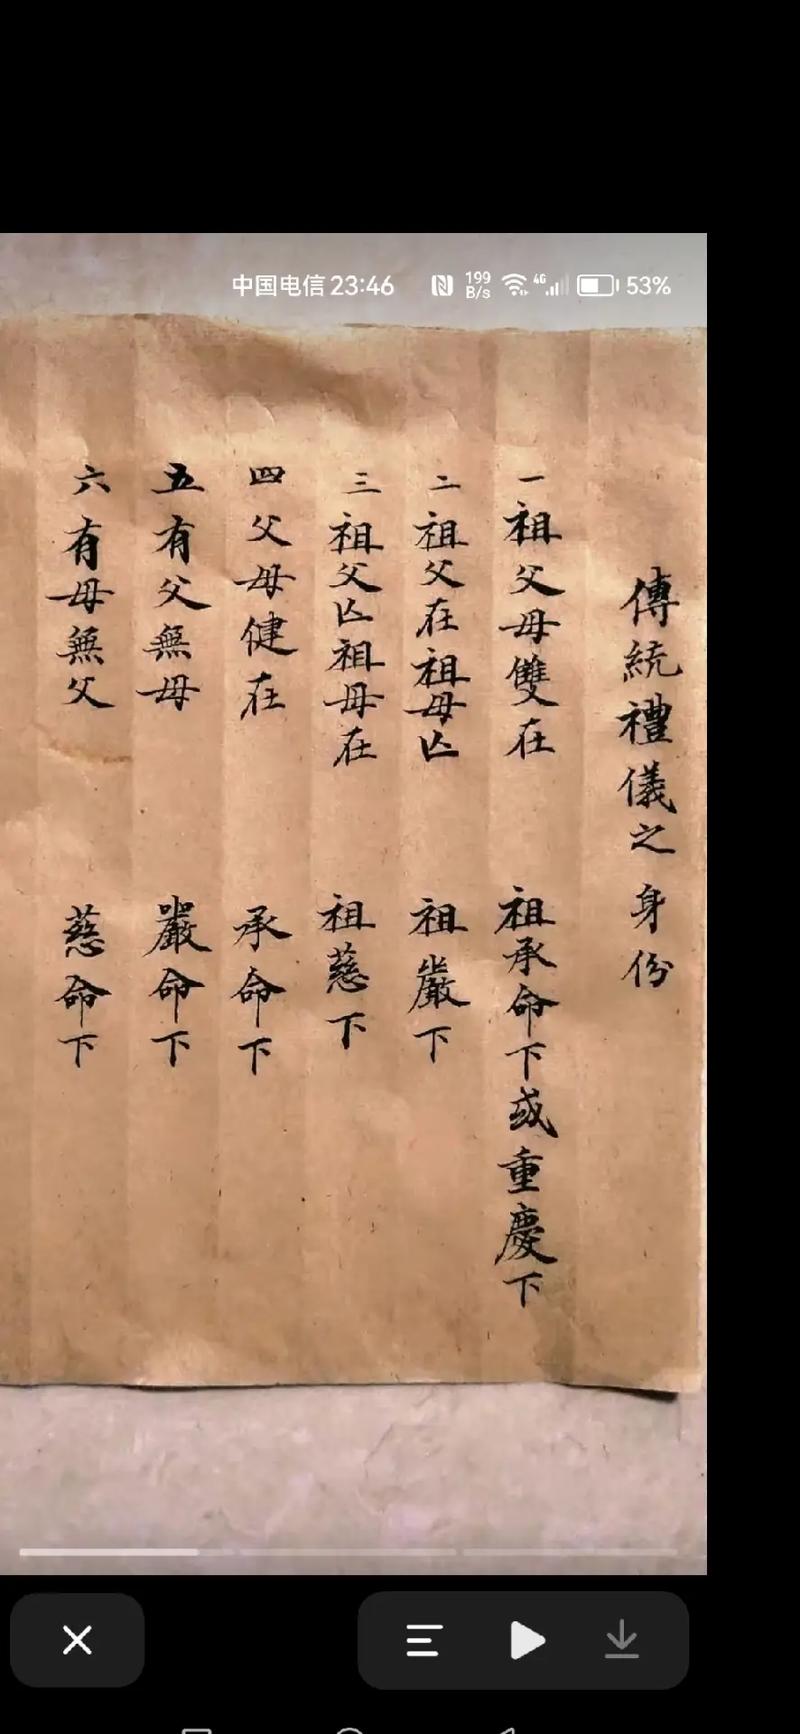 中国电信 23:46 199 B/s 4G 53%
傳統禮儀之身份
一 祖父母雙在 祖承命下或重慶下
二 祖父在祖母亡 祖嚴下
三 祖父亡祖母在 祖慈下
四 父母健在 承命下
五 有父無母 嚴命下
六 有母無父 慈命下